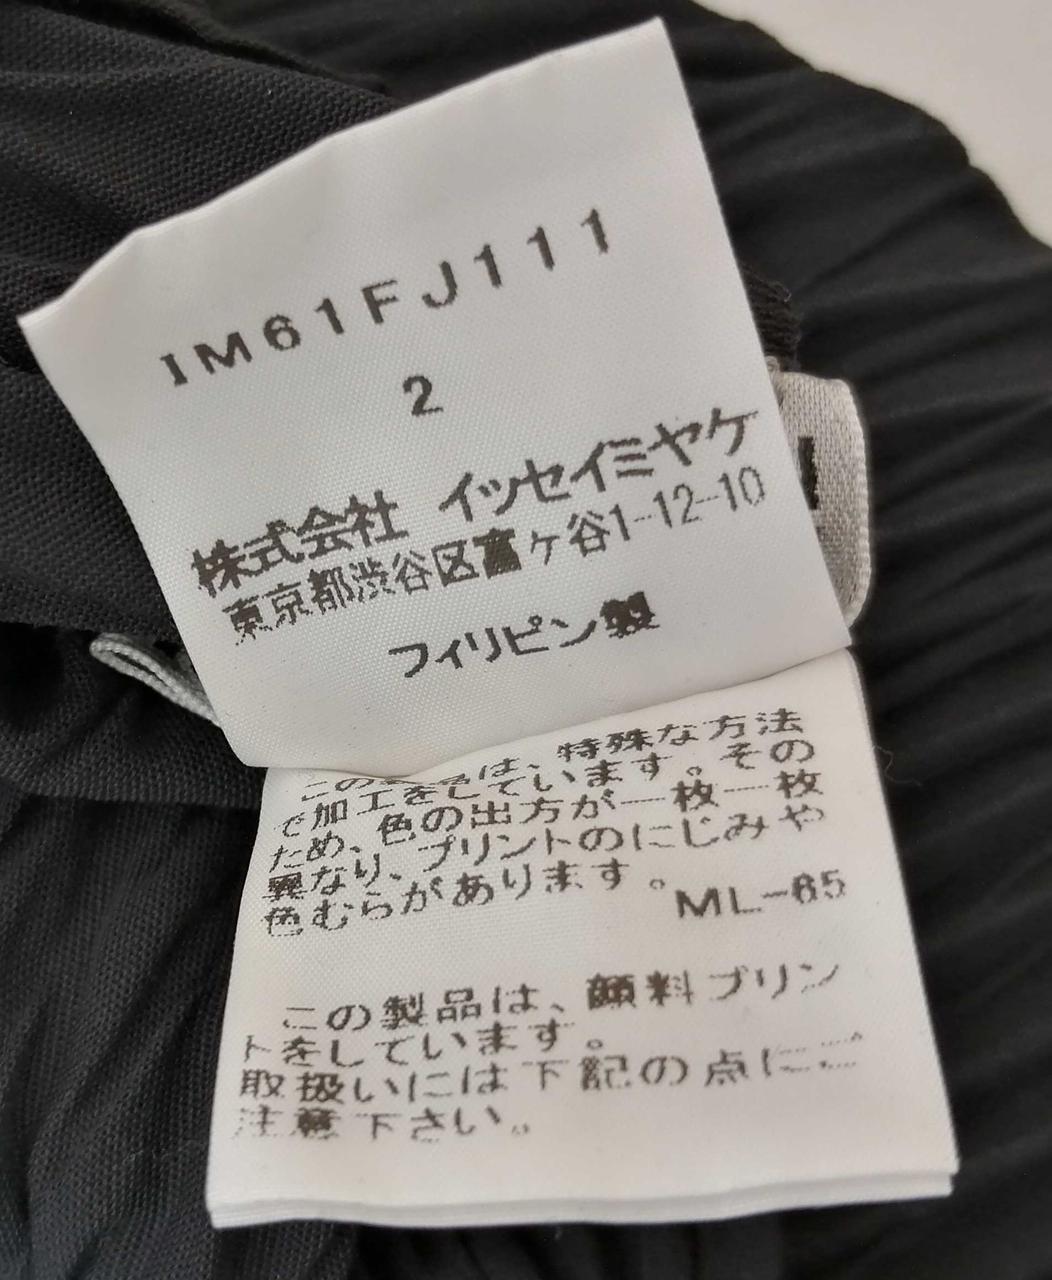 IM61FJ111
2
株式会社 イッセイミヤケ
東京都渋谷区富ヶ谷1-12-10
フィリピン製
この は、特殊な方法
で加工をしています。その
ため、色の出方が一枚一枚
異なり、プリントのにじみや
色むらがあります。
ML-65
この製品は、顔料プリン
トをしています。
取扱いには下記の点にご
注意下さい。